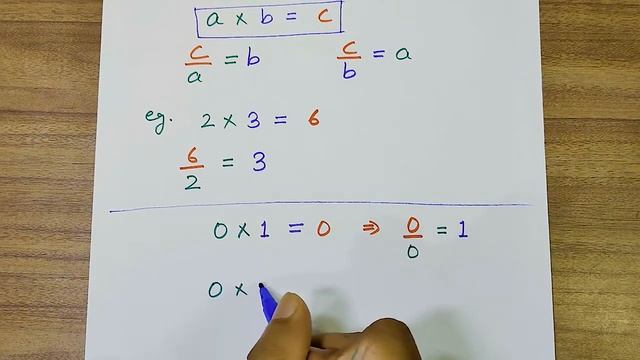 a × b = c
c/a = b c/b = a
eg. 2 × 3 = 6
6/2 = 3
0 × 1 = 0 ⇒ 0/0 = 1
0 ×